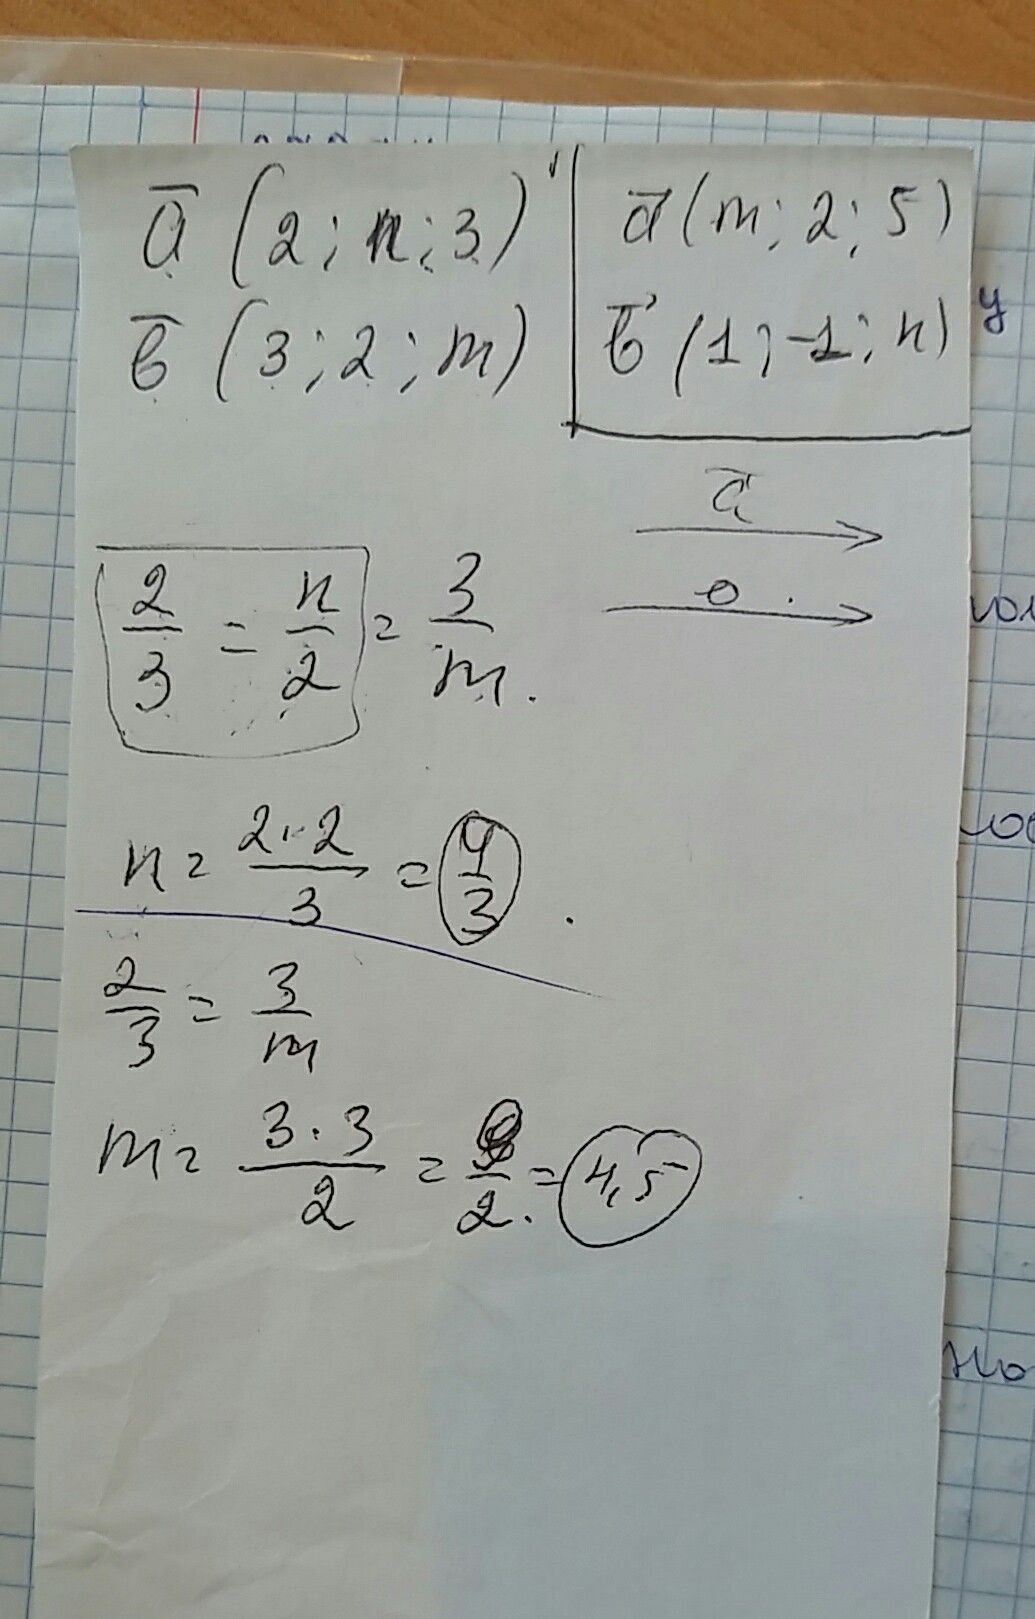 a̅ (2; n; 3)
b̅ (3; 2; m)
a⃗ (m; 2; 5)
b⃗ (1; -1; n)
a⃗
2/3 = n/2 = 3/m.
n = 2·2/3 = 4/3
2/3 = 3/m
m = 3·3/2 = 9/2 = 4,5
у